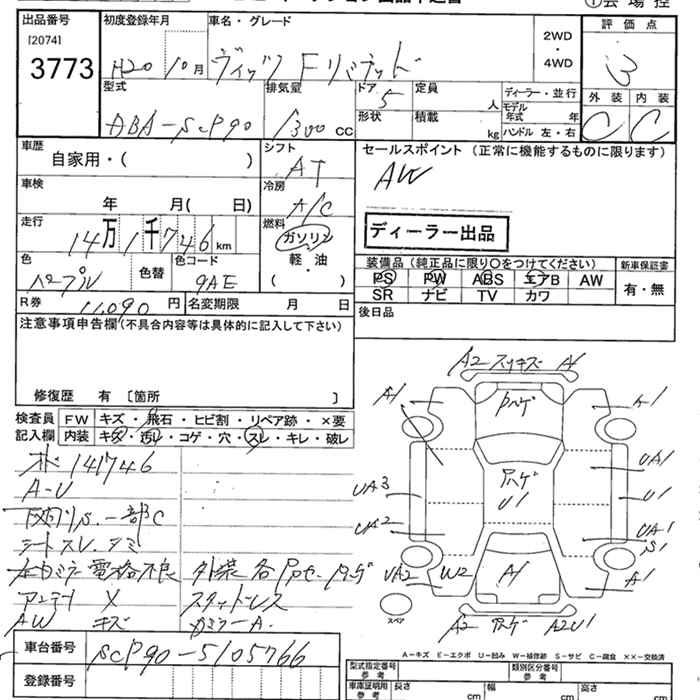 出品番号
[2074]
3773
初度登録年月
H20 10月
車名・グレード
ヴィッツ F リミテッド
2WD
・
4WD
評価点
3
外装 内装
C C
型式
ABA-SCP90
排気量
1300 cc
ドア 5
形状
定員 人
積載 kg
ディーラー・並行
モデル年式 年
ハンドル 左・右
車歴
自家用・( )
シフト
AT
車検
年 月( 日)
冷房
A/C
走行
14万1千746km
燃料
ガソリン
軽・油
( )
色
パープル
色替
色コード
9AE
R券
11,090円
名変期限 月 日
セールスポイント (正常に機能するものに限ります)
AW
ディーラー出品
装備品 (純正品に限り○をつけてください)
PS PW ABS エアB AW
SR ナビ TV カワ
新車保証書
有・無
後日品
注意事項申告欄(不具合内容等は具体的に記入して下さい)
修復歴 有 [箇所 ]
検査員記入欄
FW キズ・飛石・ヒビ割・リペア跡・×要
内装 キズ・汚レ・コゲ・穴・スレ・キレ・破レ
141746
A-U
下廻りS. 一部C
シートスレ.
電格不良
アンテナ X
AW キズ
外装各
スタッドレス
A2 スリキズ A1
A1
A1
UA3
UA2
UA2
W2
U1
A1
UA1
U1
UA1
S1
A1
A2
A2U1
スペア
A-キズ E-エクボ U-凹み W-補修跡 S-サビ C-腐食 ××-交換済
車台番号
SCP90-5105766
登録番号
型式指定番号
参考
類別区分番号
参考
車庫証明用
参考
長さ cm
幅 cm
高さ cm